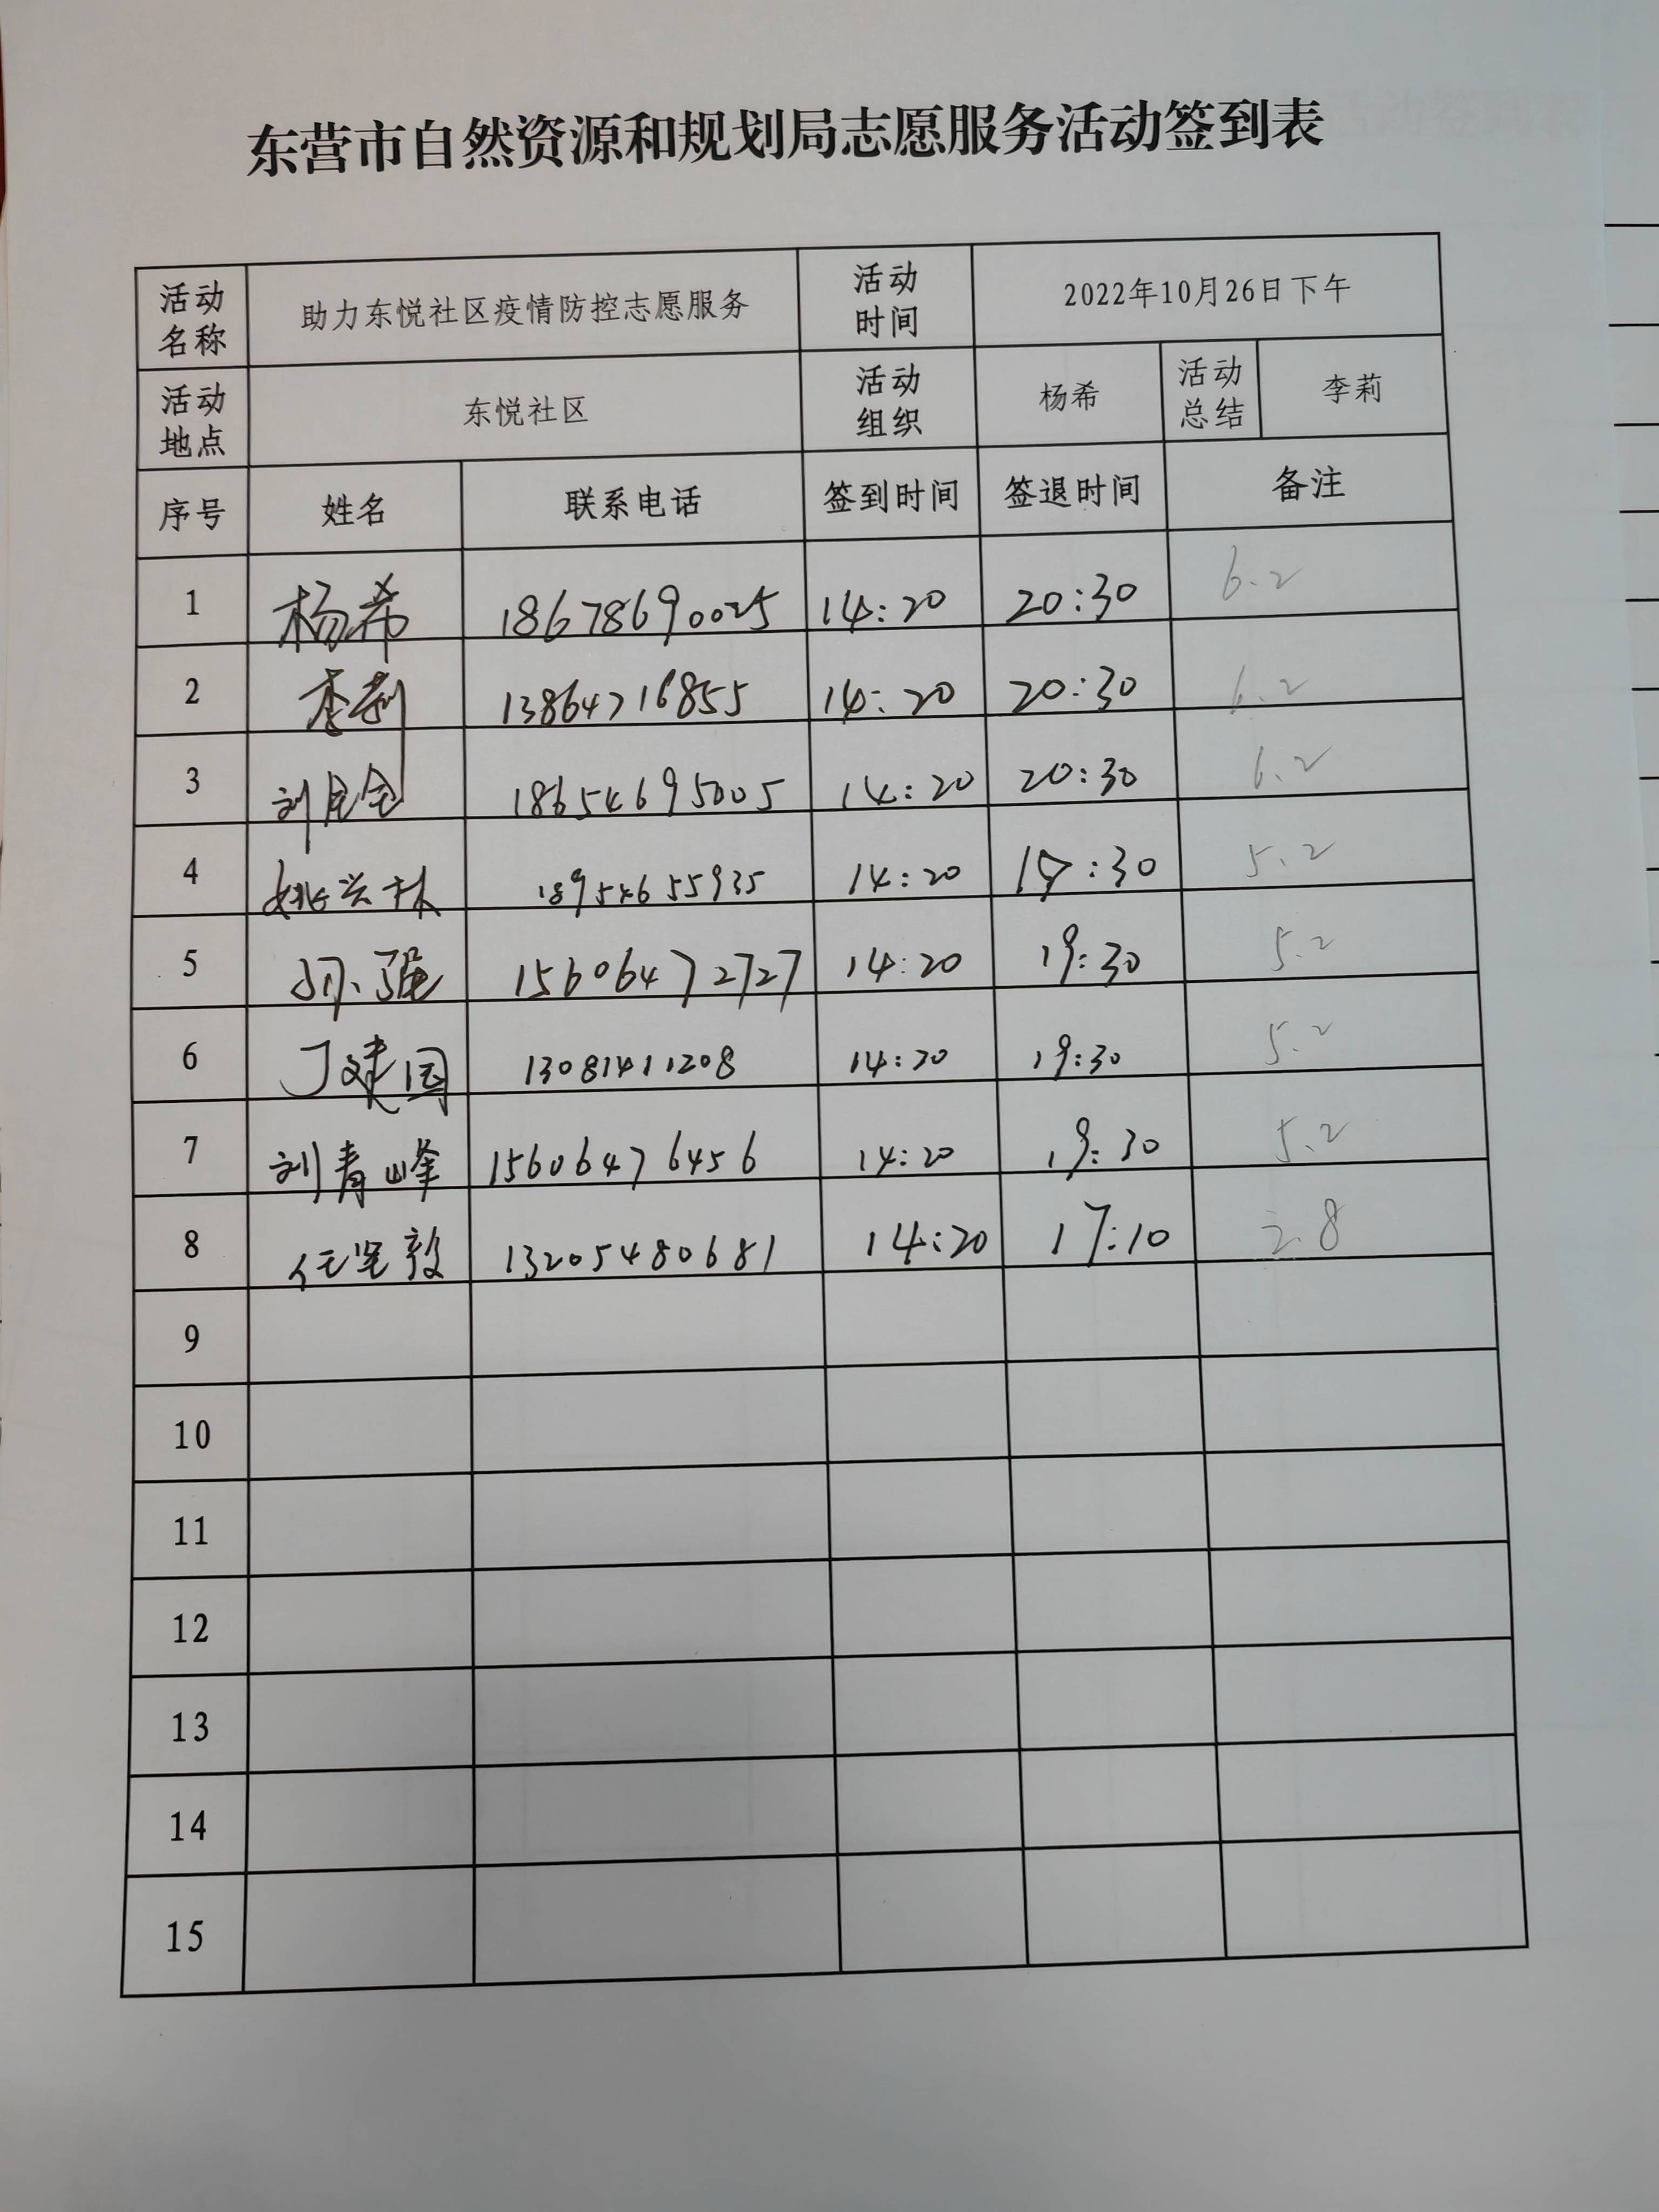 东营市自然资源和规划局志愿服务活动签到表
活动名称 助力东悦社区疫情防控志愿服务 活动时间 2022年10月26日下午
活动地点 东悦社区 活动组织 杨希 活动总结 李莉
序号 姓名 联系电话 签到时间 签退时间 备注
1 杨希 18678690025 14:20 20:30 6.2
2 李莉 13864716855 14:20 20:30 6.2
3 18654695005 14:20 20:30 6.2
4 姚兴林 18954655935 14:20 19:30 5.2
5 孙强 15606472727 14:20 19:30 5.2
6 丁建国 13081411208 14:20 19:30 5.2
7 刘青峰 15606476456 14:20 19:30 5.2
8 13205480681 14:20 17:10 2.8
9
10
11
12
13
14
15